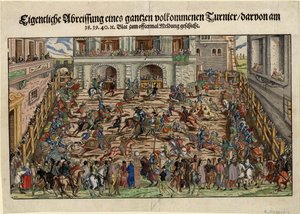 Eigentliche Abreissung eines gantzen volkommenen Turnier/darvon am
38. 39. 40. &c. Blat zum offtermal Meldung geschicht.